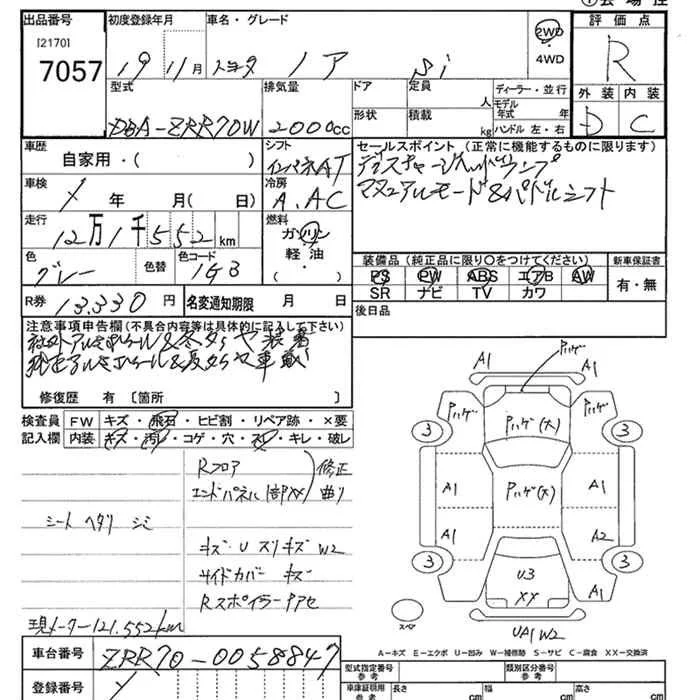 出品番号 初度登録年月 車名・グレード 2WD・4WD 評価点
[2170]
7057 19 11月 トヨタ ノア Si R
型式 排気量 ドア 定員 人 ディーラー・並行 外装 内装
DBA-ZRR70W 2000cc 形状 積載 kg モデル年式 年 ハンドル 左・右 D C
車歴 自家用・( ) シフト インパネAT セールスポイント (正常に機能するものに限ります)
ディスチャージヘッドランプ
車検 年 月( 日) 冷房 A.AC マニュアルモード&パドルシフト
走行 12万1千552km 燃料 ガソリン・軽油・( )
色 グレー 色替 色コード 1G3 装備品 (純正品に限り○をつけてください) 新車保証書
PS PW ABS エアB AW 有・無
SR ナビ TV カワ
R券 13,330円 名変通知期限 月 日 後日品
注意事項申告欄(不具合内容等は具体的に記入して下さい)
社外アルミホイール&冬タイヤ装着
純正アルミホイール&夏タイヤ車載
修復歴 有 〔箇所 〕
検査員記入欄 FW キズ・飛石・ヒビ割・リペア跡・×要
内装 キズ・汚レ・コゲ・穴・スレ・キレ・破レ
Rフロア 修正
エンドパネル 1部XX 曲り
シート ヘタリ シミ
キズ・U スリキズ W2
サイドカバー キズ
Rスポイラー Pアセ
現メーター121,552km
車台番号 ZRR70-0058847
登録番号
A1 Pハゲ A1
Pハゲ Pハゲ(大) Pハゲ
3 3
A1 Pハゲ(大) A1
A1 A2
3 U3 XX 3
A1
スペア UA1 W2
A-キズ E-エクボ U-凹み W-補修跡 S-サビ C-腐食 XX-交換済
型式指定番号 参考 類別区分番号 参考
車庫証明用 参考 長さ cm 幅 cm 高さ cm